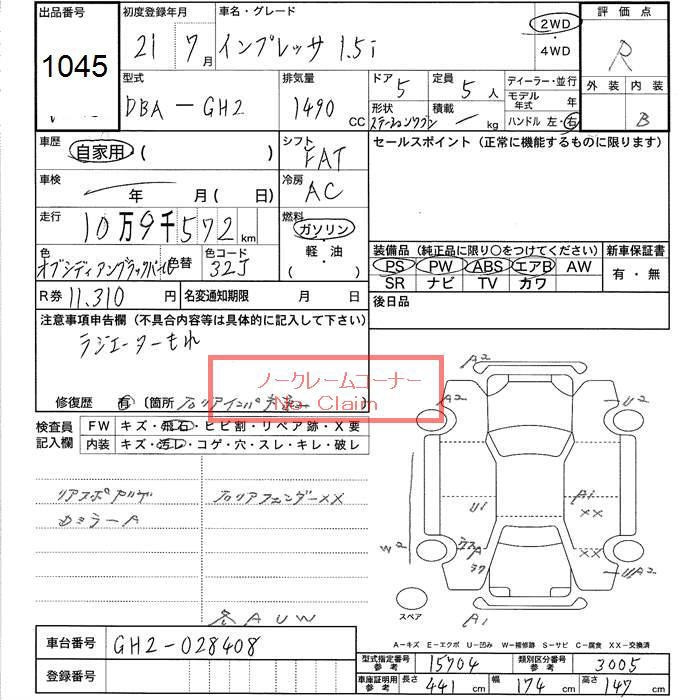 出品番号 初度登録年月 車名・グレード 評価点
1045 21 7月 インプレッサ 1.5i 2WD・4WD R
型式 排気量 ドア 定員 ディーラー・並行 外装 内装
DBA-GH2 1490 CC 5 5人 モデル年式 年
形状 ステーションワゴン 積載 kg ハンドル 左・右 B
車歴 自家用 ( ) シフト FAT セールスポイント (正常に機能するものに限ります)
車検 年 月 ( 日) 冷房 AC
走行 10万9千572km 燃料 ガソリン・軽油 ( )
装備品 (純正品に限り○をつけてください) 新車保証書
色 オブシディアンブラックパール 色替 色コード 32J PS PW ABS エアB AW 有・無
SR ナビ TV カワ
R券 11,310 円 名変通知期限 月 日 後日品
注意事項申告欄 (不具合内容等は具体的に記入して下さい)
ラジエーターもれ
ノークレームコーナー
No Claim
修復歴 有 〔箇所 右リアインパネ
検査員記入欄 FW キズ・飛石・ヒビ割・リペア跡・X要
内装 キズ・汚レ・コゲ・穴・スレ・キレ・破レ
リアスポアルゲ 右リアフェンダーXX
ミラーA
A2
A2 U2
Ui Ai
XX
W2
U2
A2
スペア Ai
各AUW
A-キズ E-エクボ U-凹み W-補修跡 S-サビ C-腐食 XX-交換済
車台番号 GH2-028408
登録番号
型式指定番号 参考 15704 類別区分番号 参考 3005
車庫証明用 参考 長さ 441 cm 幅 174 cm 高さ 147 cm